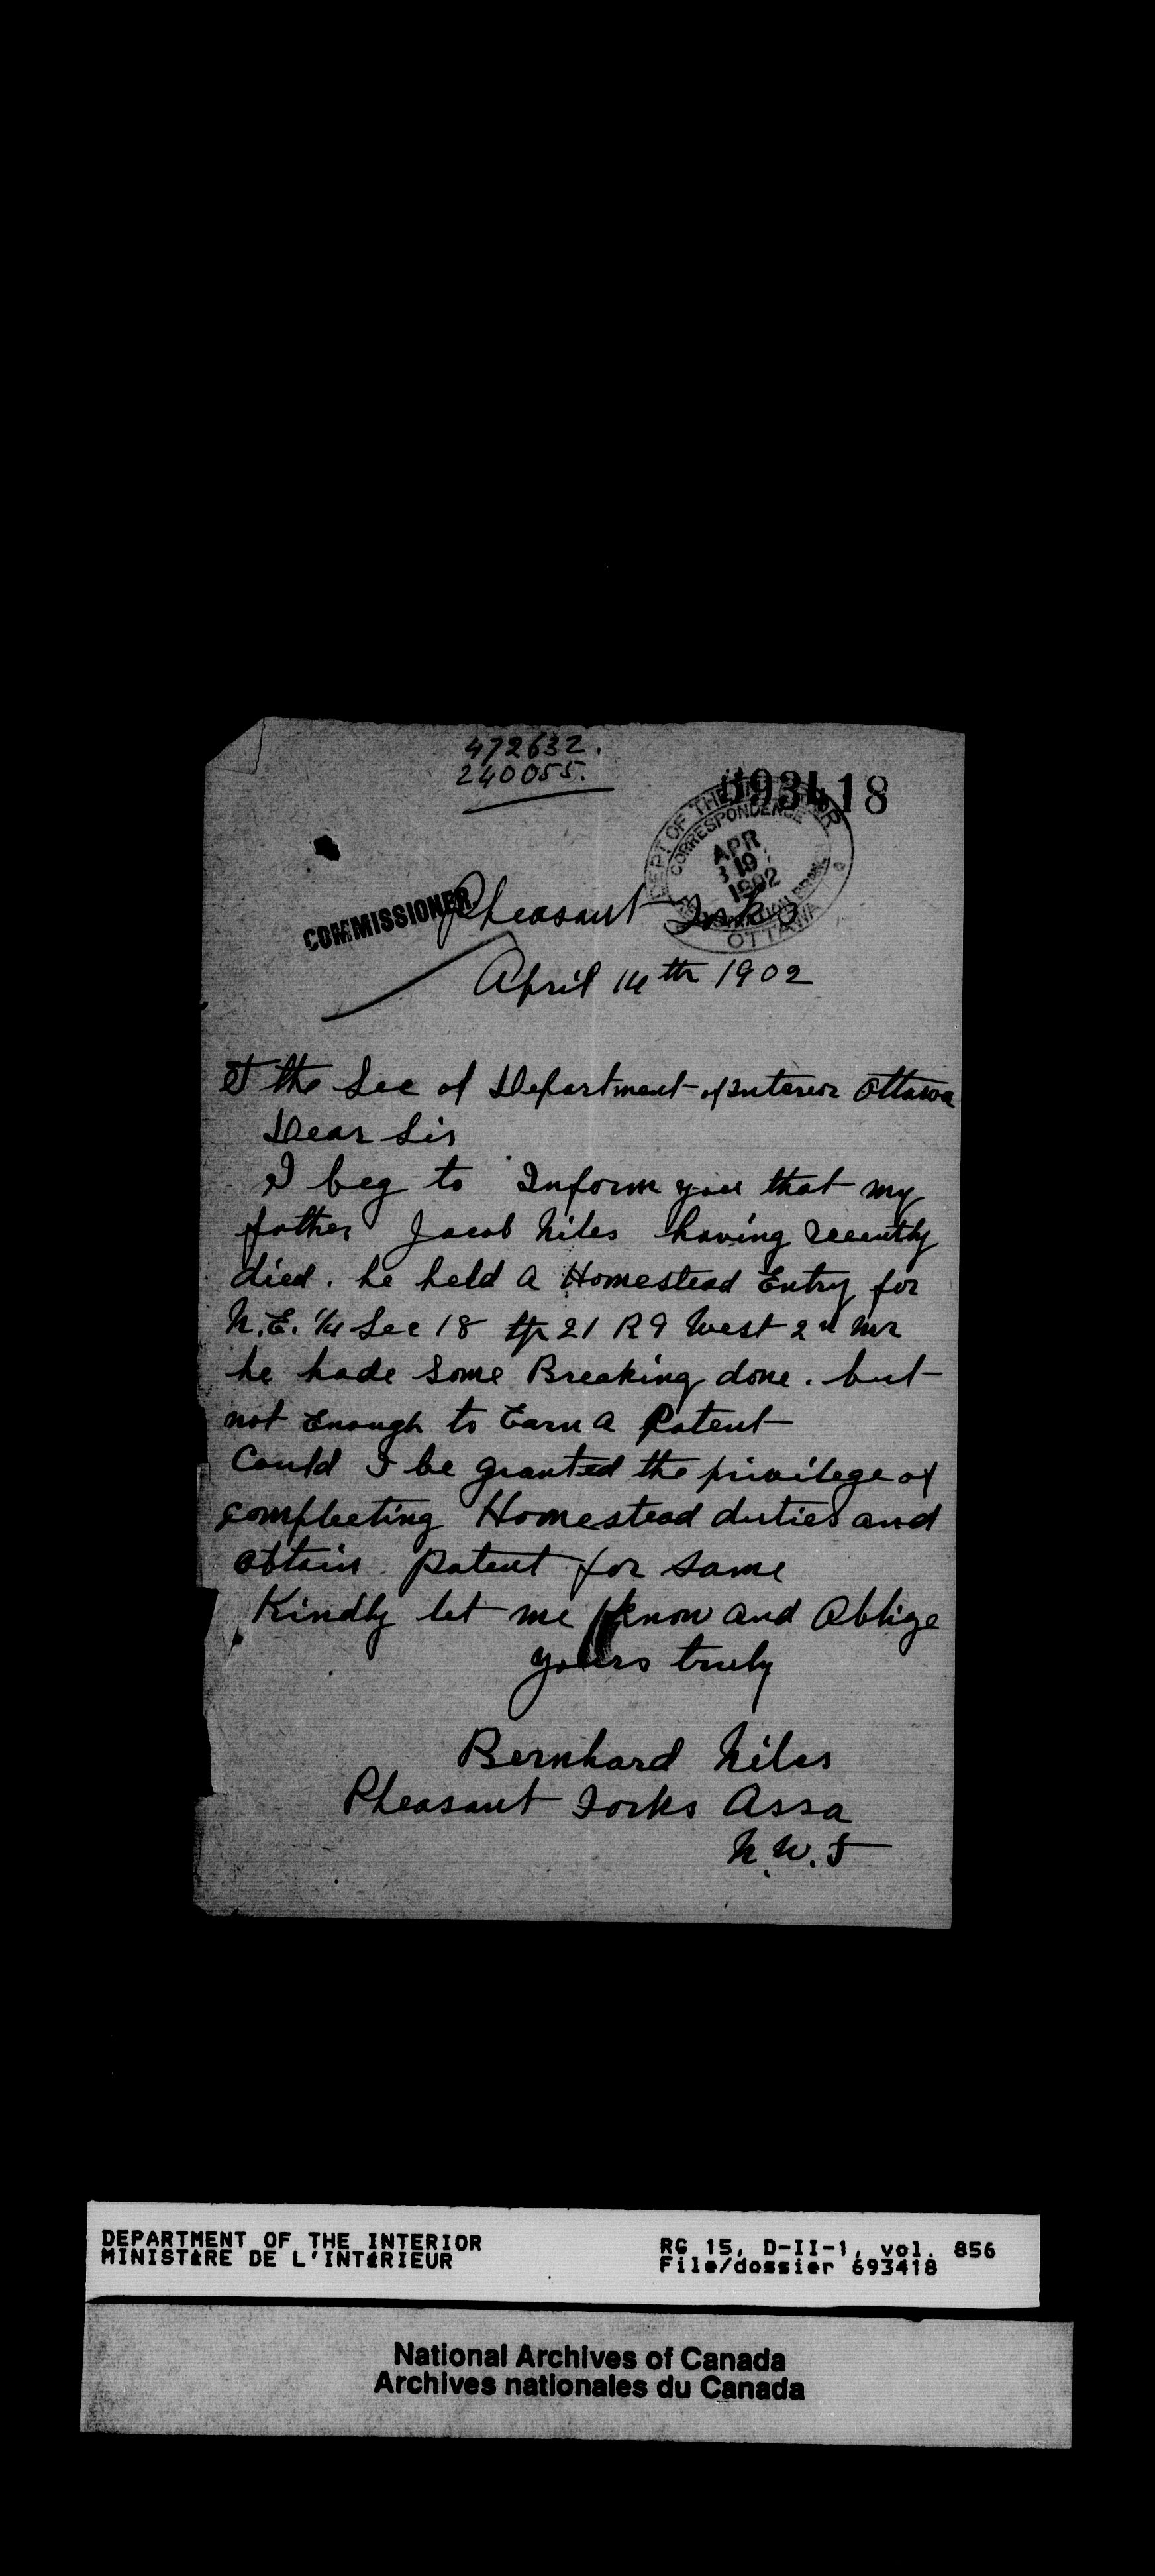 472632.
240055.
693418
DEPT OF THE INTERIOR
CORRESPONDENCE
APR
19
1902
REGISTRATION BRANCH
OTTAWA
COMMISSIONER
Pheasant Forks
April 14th 1902
To the Sec of Department of Interior Ottawa
Dear Sir
I beg to Inform you that my
father Jacob Niles having recently
died. he held a Homestead Entry for
N.E. 1/4 Sec 18 tp 21 R 9 West 2n Mr
he hade some Breaking done. but
not Enough to Earn a Patent
Could I be granted the privilege of
compleeting Homestead duties and
obtain patent for same
Kindly let me know and Oblige
yours truly
Bernhard Niles
Pheasant Forks Assa
N.W.T
DEPARTMENT OF THE INTERIOR
MINISTÈRE DE L'INTÉRIEUR
RG 15, D-II-1, vol. 856
File/dossier 693418
National Archives of Canada
Archives nationales du Canada